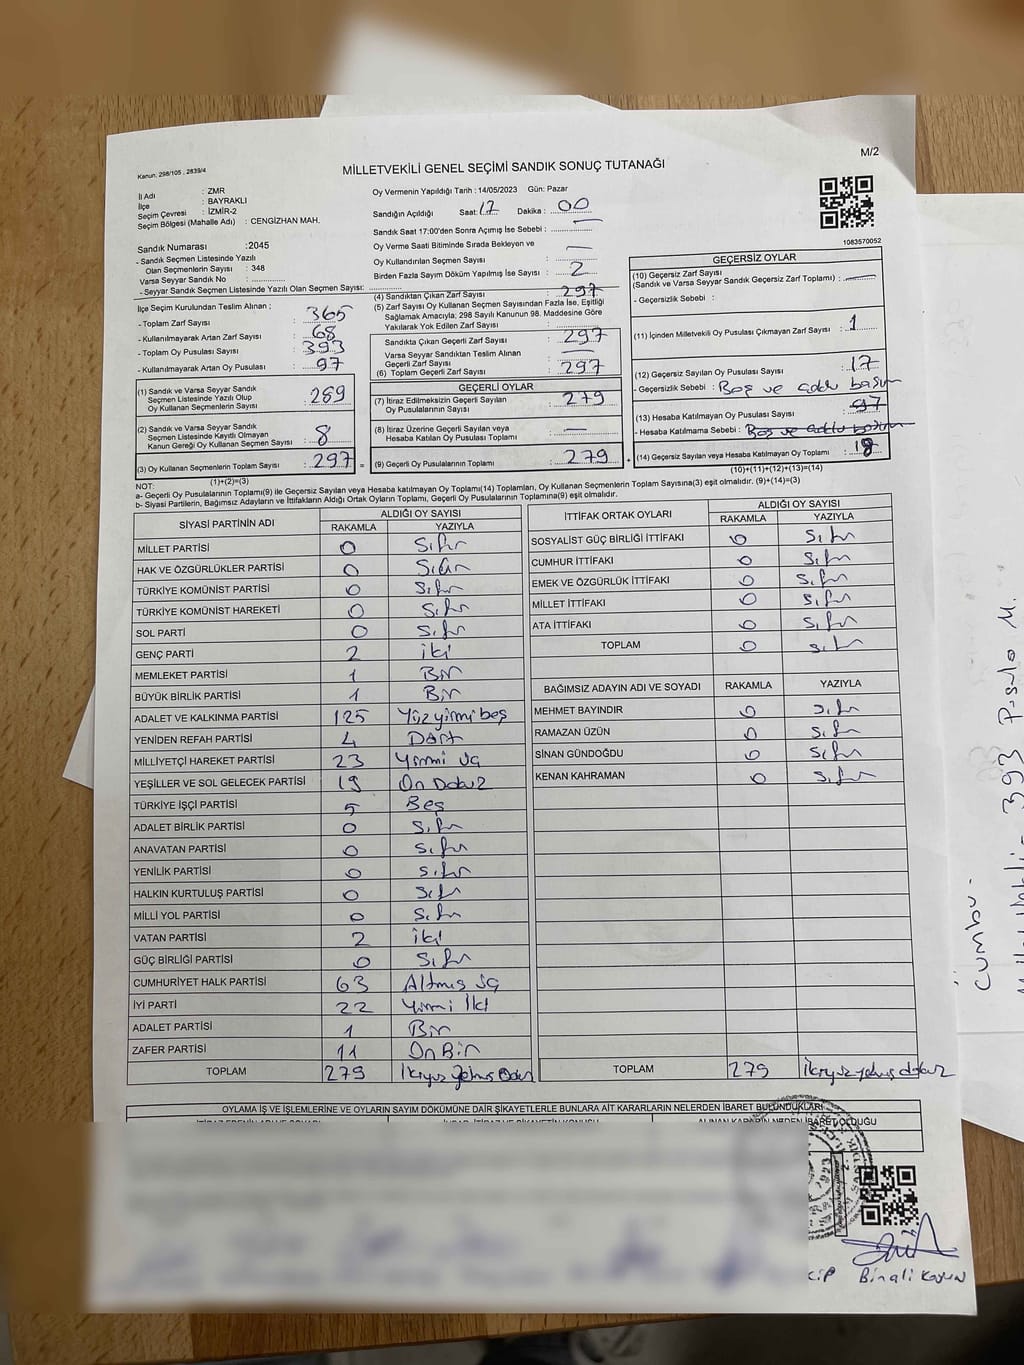 M/2
Kanun: 298/105 , 2839/4
MİLLETVEKİLİ GENEL SEÇİMİ SANDIK SONUÇ TUTANAĞI
İl Adı : ZMR
İlçe : BAYRAKLI
Seçim Çevresi : İZMİR-2
Seçim Bölgesi (Mahalle Adı) : CENGİZHAN MAH.
Sandık Numarası :2045
- Sandık Seçmen Listesinde Yazılı
Olan Seçmenlerin Sayısı : 348
Varsa Seyyar Sandık No : ..............
- Seyyar Sandık Seçmen Listesinde Yazılı Olan Seçmen Sayısı: ..............
Oy Vermenin Yapıldığı Tarih : 14/05/2023 Gün: Pazar
Sandığın Açıldığı Saat: 17 Dakika : 00
Sandık Saat 17:00'den Sonra Açımış İse Sebebi : —
Oy Verme Saati Bitiminde Sırada Bekleyen ve
Oy Kullandırılan Seçmen Sayısı : —
Birden Fazla Sayım Döküm Yapılmış İse Sayısı : 2
1083570052
İlçe Seçim Kurulundan Teslim Alınan :
- Toplam Zarf Sayısı : 365
- Kullanılmayarak Artan Zarf Sayısı : 68
- Toplam Oy Pusulası Sayısı : 393
- Kullanılmayarak Artan Oy Pusulası : 97
(1) Sandık ve Varsa Seyyar Sandık
Seçmen Listesinde Yazılı Olup
Oy Kullanan Seçmenlerin Sayısı : 289
(2) Sandık ve Varsa Seyyar Sandık
Seçmen Listesinde Kayıtlı Olmayan
Kanun Gereği Oy Kullanan Seçmen Sayısı : 8
(3) Oy Kullanan Seçmenlerin Toplam Sayısı : 297 =
(1)+(2)=(3)
(4) Sandıktan Çıkan Zarf Sayısı : 297
(5) Zarf Sayısı Oy Kullanan Seçmen Sayısından Fazla İse, Eşitliği
Sağlamak Amacıyla; 298 Sayılı Kanunun 98. Maddesine Göre
Yakılarak Yok Edilen Zarf Sayısı : ..............
Sandıkta Çıkan Geçerli Zarf Sayısı : 297
Varsa Seyyar Sandıktan Teslim Alınan
Geçerli Zarf Sayısı : —
(6) Toplam Geçerli Zarf Sayısı : 297
GEÇERLİ OYLAR
(7) İtiraz Edilmeksizin Geçerli Sayılan
Oy Pusulalarının Sayısı : 279
(8) İtiraz Üzerine Geçerli Sayılan veya
Hesaba Katılan Oy Pusulası Toplamı : —
(9) Geçerli Oy Pusulalarının Toplamı : 279 +
GEÇERSİZ OYLAR
(10) Geçersiz Zarf Sayısı
(Sandık ve Varsa Seyyar Sandık Geçersiz Zarf Toplamı) : —
- Geçersizlik Sebebi :
(11) İçinden Milletvekili Oy Pusulası Çıkmayan Zarf Sayısı : 1
(12) Geçersiz Sayılan Oy Pusulası Sayısı : 17
- Geçersizlik Sebebi : Boş ve çoklu basım
(13) Hesaba Katılmayan Oy Pusulası Sayısı : 97
- Hesaba Katılmama Sebebi : Boş ve çoklu basım
(14) Geçersiz Sayılan veya Hesaba Katılmayan Oy Toplamı : 18
(10)+(11)+(12)+(13)=(14)
NOT:
a- Geçerli Oy Pusulalarının Toplamı(9) ile Geçersiz Sayılan veya Hesaba Katılmayan Oy Toplamı(14) Toplamları, Oy Kullanan Seçmenlerin Toplam Sayısına(3) eşit olmalıdır. (9)+(14)=(3)
b- Siyasi Partilerin, Bağımsız Adayların ve İttifakların Aldığı Ortak Oyların Toplamı, Geçerli Oy Pusulalarının Toplamına(9) eşit olmalıdır.
SİYASİ PARTİNİN ADI ALDIĞI OY SAYISI
RAKAMLA YAZIYLA
MİLLET PARTİSİ 0 Sıfır
HAK VE ÖZGÜRLÜKLER PARTİSİ 0 Sıfır
TÜRKİYE KOMÜNİST PARTİSİ 0 Sıfır
TÜRKİYE KOMÜNİST HAREKETİ 0 Sıfır
SOL PARTİ 0 Sıfır
GENÇ PARTİ 2 iki
MEMLEKET PARTİSİ 1 Bir
BÜYÜK BİRLİK PARTİSİ 1 Bir
ADALET VE KALKINMA PARTİSİ 125 Yüz yirmi beş
YENİDEN REFAH PARTİSİ 4 Dört
MİLLİYETÇİ HAREKET PARTİSİ 23 Yirmi üç
YEŞİLLER VE SOL GELECEK PARTİSİ 19 On Dokuz
TÜRKİYE İŞÇİ PARTİSİ 5 Beş
ADALET BİRLİK PARTİSİ 0 Sıfır
ANAVATAN PARTİSİ 0 Sıfır
YENİLİK PARTİSİ 0 Sıfır
HALKIN KURTULUŞ PARTİSİ 0 Sıfır
MİLLİ YOL PARTİSİ 0 Sıfır
VATAN PARTİSİ 2 iki
GÜÇ BİRLİĞİ PARTİSİ 0 Sıfır
CUMHURİYET HALK PARTİSİ 63 Altmış üç
İYİ PARTİ 22 Yirmi İki
ADALET PARTİSİ 1 Bir
ZAFER PARTİSİ 11 On Bir
TOPLAM 279 İkiyüz Yetmiş Dokuz
İTTİFAK ORTAK OYLARI ALDIĞI OY SAYISI
RAKAMLA YAZIYLA
SOSYALİST GÜÇ BİRLİĞİ İTTİFAKI 0 Sıfır
CUMHUR İTTİFAKI 0 Sıfır
EMEK VE ÖZGÜRLÜK İTTİFAKI 0 Sıfır
MİLLET İTTİFAKI 0 Sıfır
ATA İTTİFAKI 0 Sıfır
TOPLAM 0 Sıfır
BAĞIMSIZ ADAYIN ADI VE SOYADI RAKAMLA YAZIYLA
MEHMET BAYINDIR 0 Sıfır
RAMAZAN ÜZÜN 0 Sıfır
SİNAN GÜNDOĞDU 0 Sıfır
KENAN KAHRAMAN 0 Sıfır
TOPLAM 279 ikiyüz yetmiş dokuz
OYLAMA İŞ VE İŞLEMLERİNE VE OYLARIN SAYIM DÖKÜMÜNE DAİR ŞİKAYETLERLE BUNLARA AİT KARARLARIN NELERDEN İBARET BULUNDUKLARI
ALINAN KARARIN NEDEN İBARET OLDUĞU
Binali
393 Pusula M.